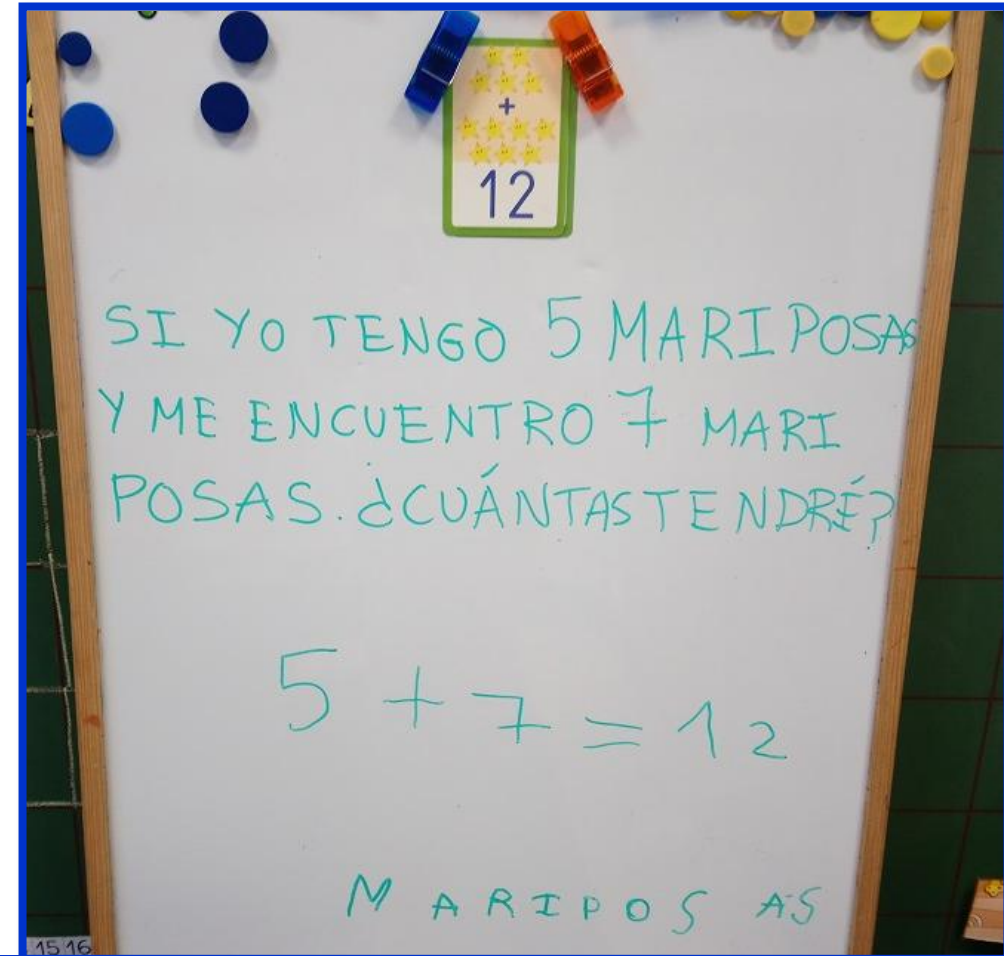 +
12
SI YO TENGO 5 MARIPOSAS
Y ME ENCUENTRO 7 MARI
POSAS. ¿CUÁNTAS TENDRÉ?
5 + 7 = 12
MARIPOSAS
15 16